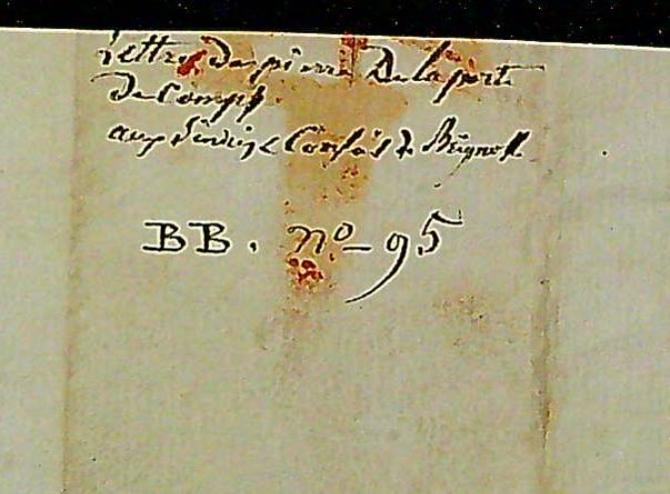 Lettre de pierre Delaporte
de Comps
aux sindics & Consuls de Baignols
BB. nº 95